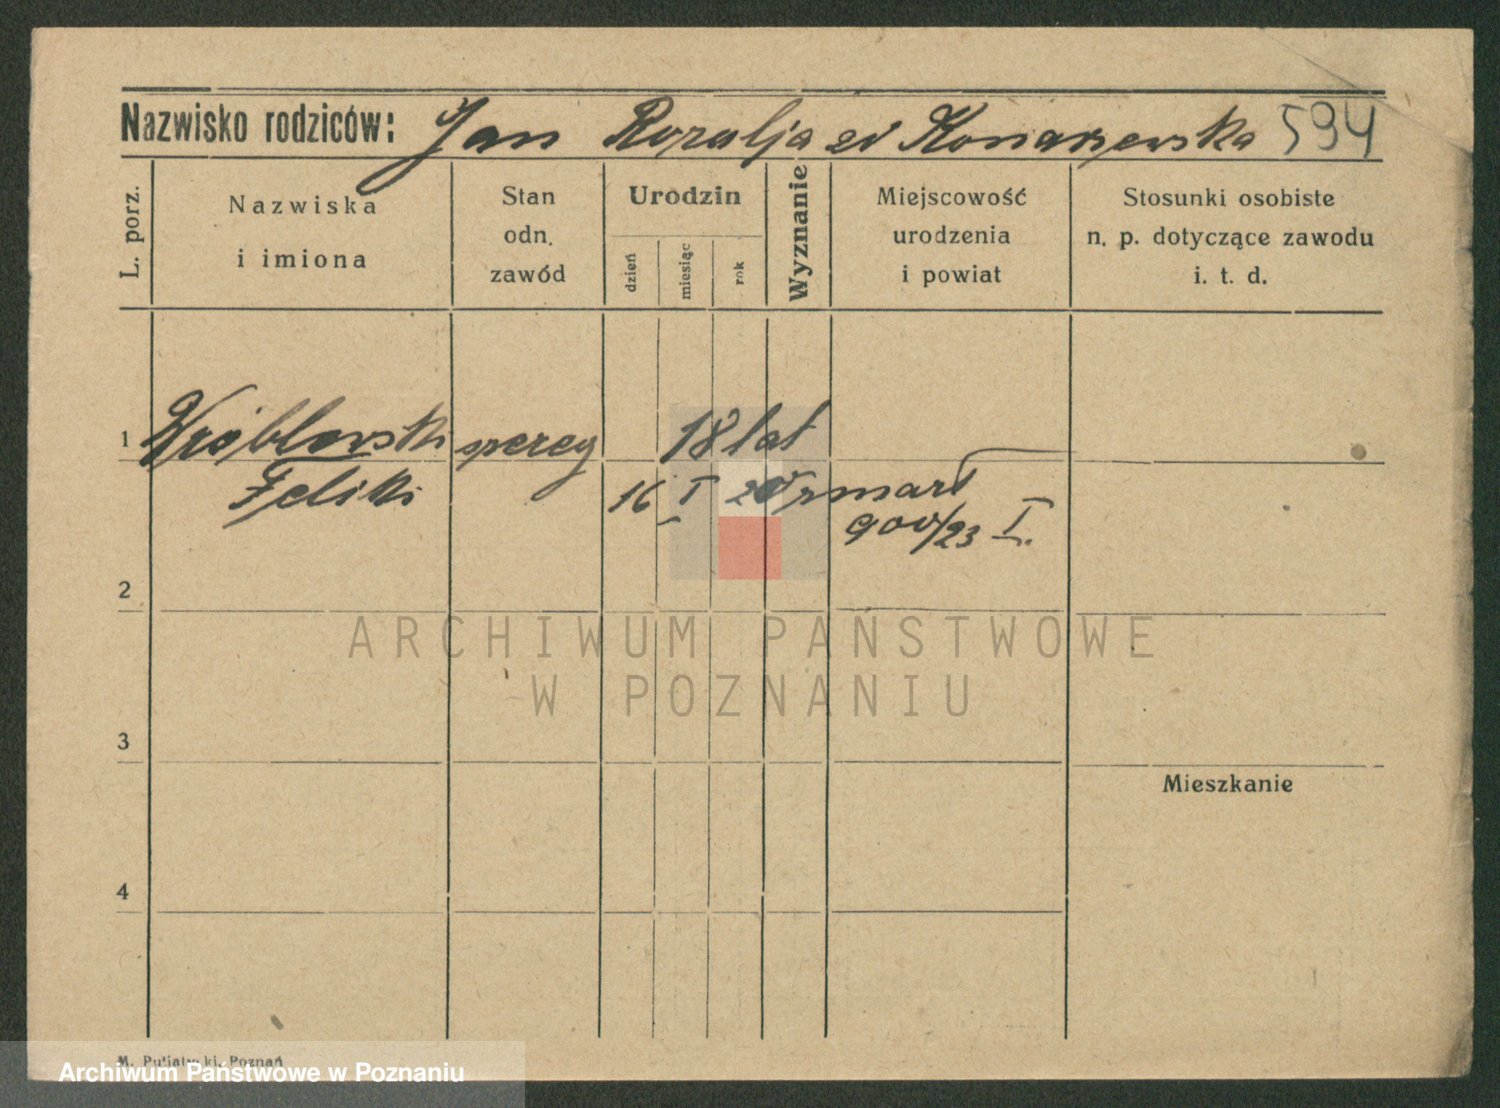 Nazwisko rodziców: Jan Rozalja zd Konarzewska 594
L. porz.
Nazwiska
i imiona
Stan
odn.
zawód
Urodzin
dzień
miesiąc
rok
Wyznanie
Miejscowość
urodzenia
i powiat
Stosunki osobiste
n. p. dotyczące zawodu
i. t. d.
1 Wróblewski szereg 18 lat
Feliks 16 I 20 zmarł
900/23 I.
2
ARCHIWUM PAŃSTWOWE
W POZNANIU
3
Mieszkanie
4
M. Putiatycki, Poznań
Archiwum Państwowe w Poznaniu